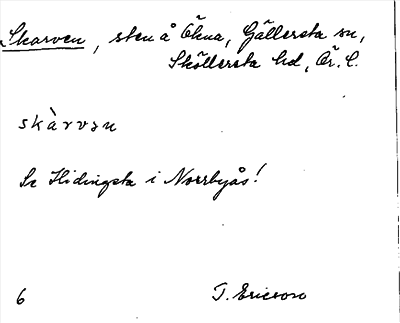 Skarven, sten å Ökna, Gällersta sn,
Sköllersta hd, Ör. l.
skàrvən
Se Hidingsta i Norrbyås!
6 T. Ericson